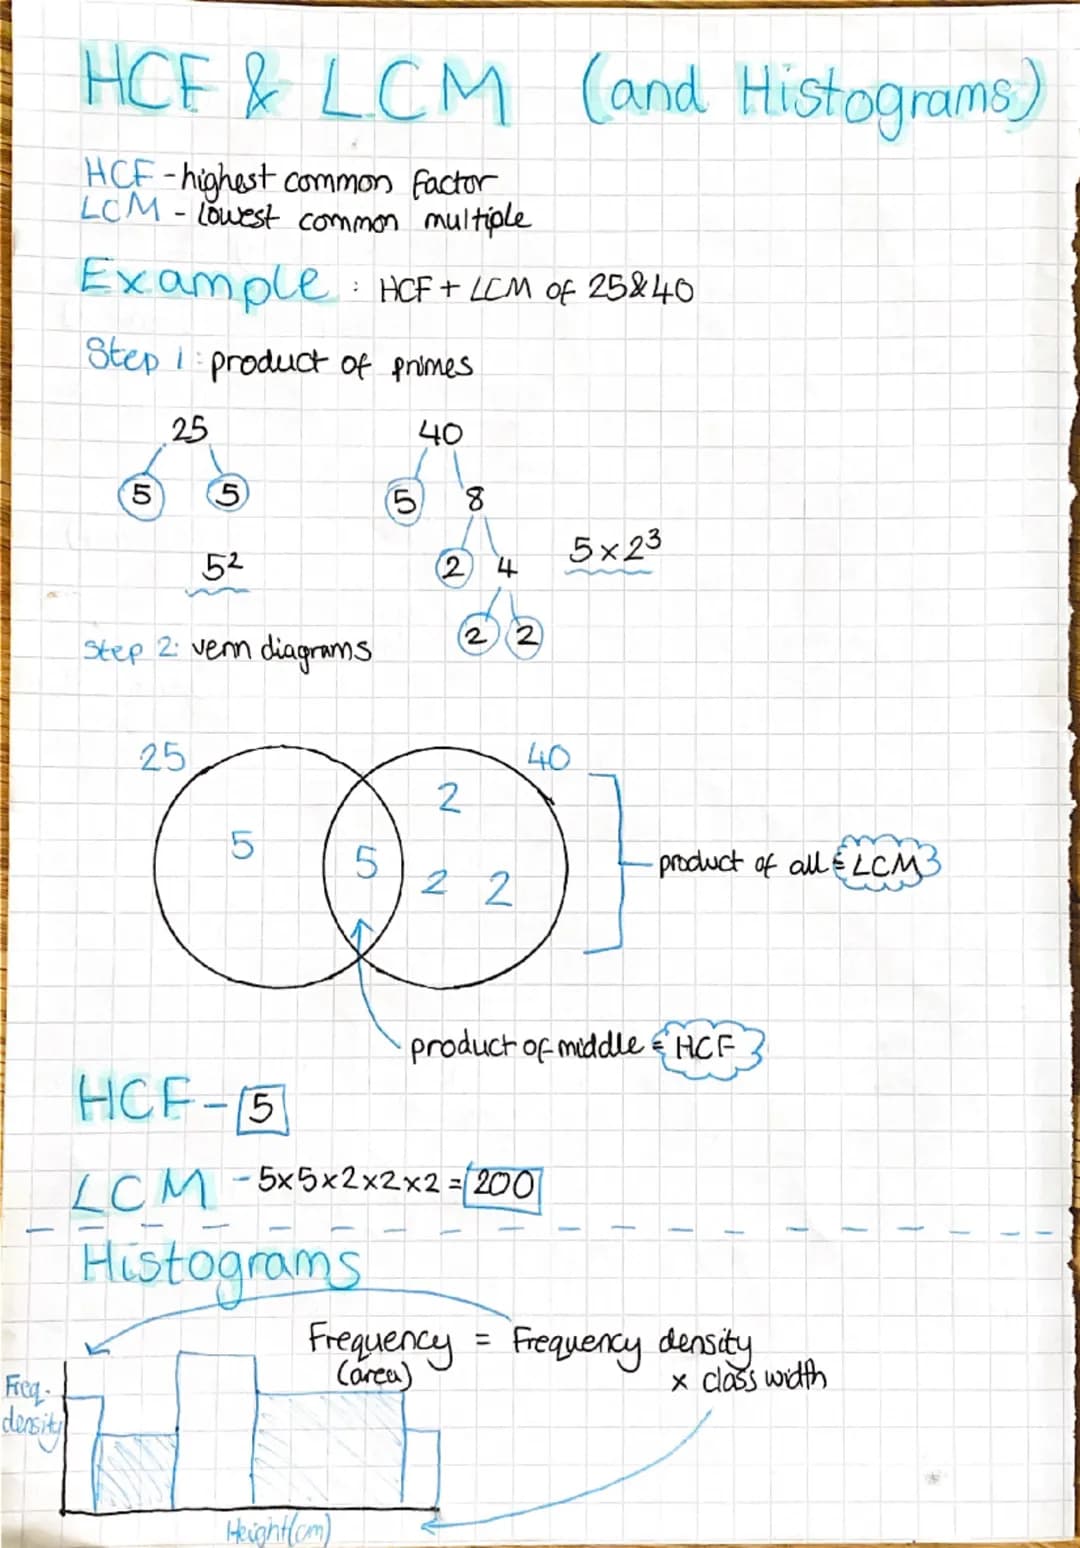 HCF & LCM (and Histograms)
HCF - highest common factor
LCM - lowest common multiple
Example : HCF + LCM of 25&40
Step 1 : product of primes
25
40
5 5
5 8
5²
2 4
5 x 2³
2 2
Step 2: venn diagrams
25
40
5
5
2
2 2
product of all = LCM
product of middle = HCF
HCF - 5
LCM - 5x5x2x2x2 = 200
Histograms
Frequency = Frequency density
(area) x class width
Freq.
density
Height(cm)